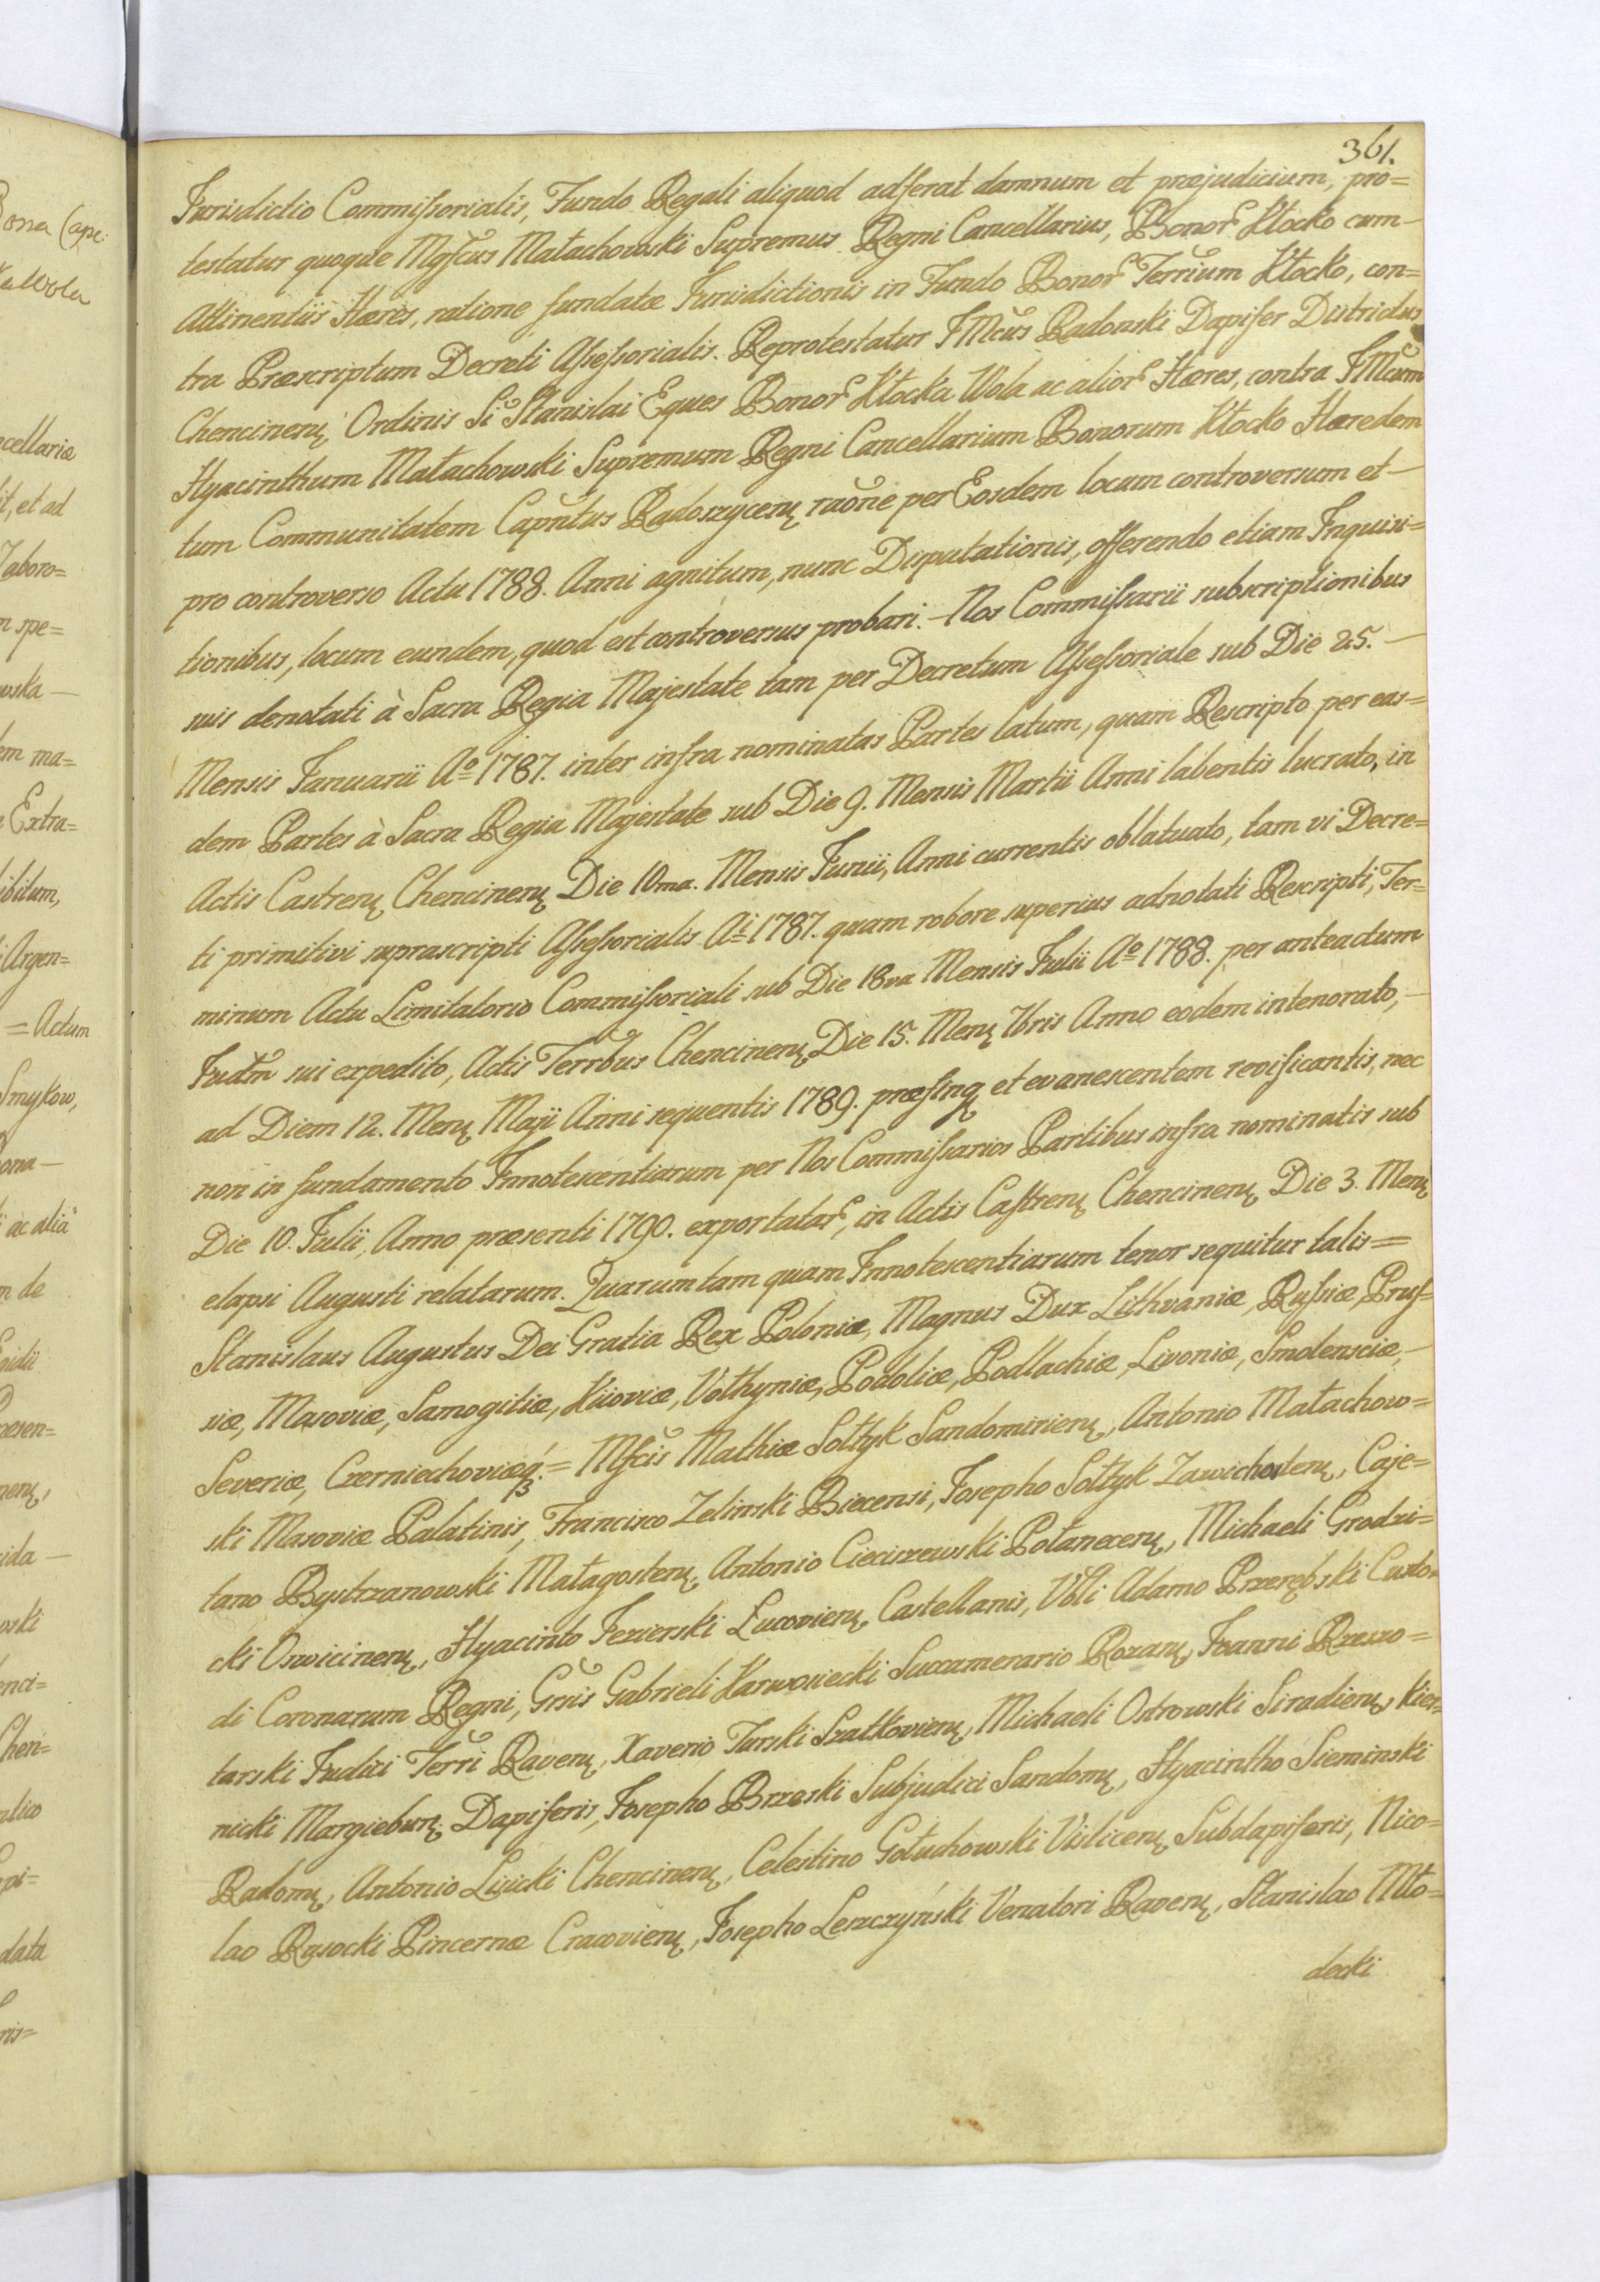 361.
Jurisdictio Commissorialis, Fundo Regali aliquod adferat damnum et præjudicium, pro=
testatur quoque Mgfcus Małachowski Supremus Regni Cancellarius, Bonor Kłocko cum
Attinentiis Hæres, ratione fundatæ Jurisdictionis in Fundo Bonor Terrium Kłocko, con=
tra Præscriptum Decreti Assessorialis. Reprotestatur JMcus Radonski Dapifer Districtus
Chencinen Ordinis Si Stanislai Eques Bonor Kłocka Wola ac alior Hæres, contra JMcum
Hyacinthum Małachowski Supremum Regni Cancellarium Bonorum Kłocko Hæredem
tum Communitatem Capntus Radoszycen raone per Eosdem locum controversum et
pro controverso Actu 1788. Anni agnitum, nunc Disputationis, offerendo etiam Inquisi=
tionibus, locum eundem, quod est controversus probari. Nos Commissarii subscriptionibus
suis denotati à Sacra Regia Majestate tam per Decretum Assessoriale sub Die 25.
Mensis Januarii Ao 1787. inter infra nominatas Partes latum, quam Rescripto per eas=
dem Partes à Sacra Regia Majestate sub Die 9. Mensis Martii Anni labentis lucrato, in
Actis Castren Chencinen Die 10ma. Mensis Junii, Anni currentis oblatuato, tam vi Decre=
ti primitivi suprascripti Assessorialis Ai 1787. quam robore superius adnotati Rescripti, Ter=
minum Actu Limitatorio Commissoriali sub Die 18va Mensis Julii Ao 1788. per anteactum
Judm sui expedito, Actis Terrbus Chencinen Die 15. Men 7bris Anno eodem intenorato,
ad Diem 12. Men Maji Anni sequentis 1789. præfing et evanescentem revificantis, nec
non in fundamento Innotescentiarum per Nos Commissarios Partibus infra nominatis sub
Die 10. Julii, Anno præsenti 1790. exportatar, in Actis Castren Chencinen Die 3. Men
elapsi Augusti relatarum. Quarum tam quam Innotescentiarum tenor sequitur talis=
Stanislaus Augustus Dei Gratia Rex Poloniæ, Magnus Dux Lithvaniæ, Russiæ, Prus=
siæ, Masoviæ, Samogitiæ, Kiioviæ, Vołhyniæ, Podoliæ, Podlachiæ, Livoniæ, Smolensciæ,
Severiæ, Czerniechoviæq.= Mfcis Mathiæ Sołtyk Sandomirien, Antonio Małachow=
ski Masoviæ Palatinis, Francisco Zelinski Biecensi, Josepho Sołtyk Zawichosten, Caje=
tano Bystrzanowski Małagosten, Antonio Cieciszewski Połanecen, Michaeli Grodzi=
cki Oswicinen, Hyacinto Jezierski Lucovien, Castellanis, Vbli Adamo Przerębski Custo=
di Coronarum Regni, Grsis Gabrieli Karwosiecki Succamerario Rozan, Joanni Rzeszo=
tarski Judici Terri Raven, Xaverio Turski Szatkovien, Michaeli Ostrowski Siradien, Kier=
nicki Margiebur, Dapiferis, Josepho Brzeski Subjudici Sandom, Hyacintho Sieminski
Radom, Antonio Lisicki Chencinen, Celestino Gołuchowski Vislicen Subdapiferis, Nico=
lao Rusocki Pincernæ Cracovien, Josepho Leszczyński Venatori Raven, Stanislao Mło=
decki